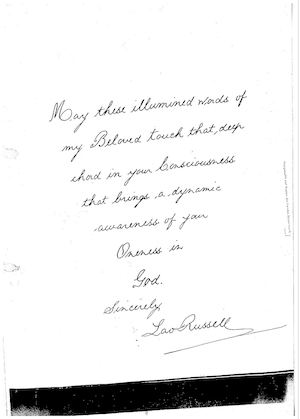 May these illumined words of
my Beloved touch that deep
chord in your Consciousness
that brings a dynamic
awareness of your
Oneness in
God.
Sincerely
Lao Russell